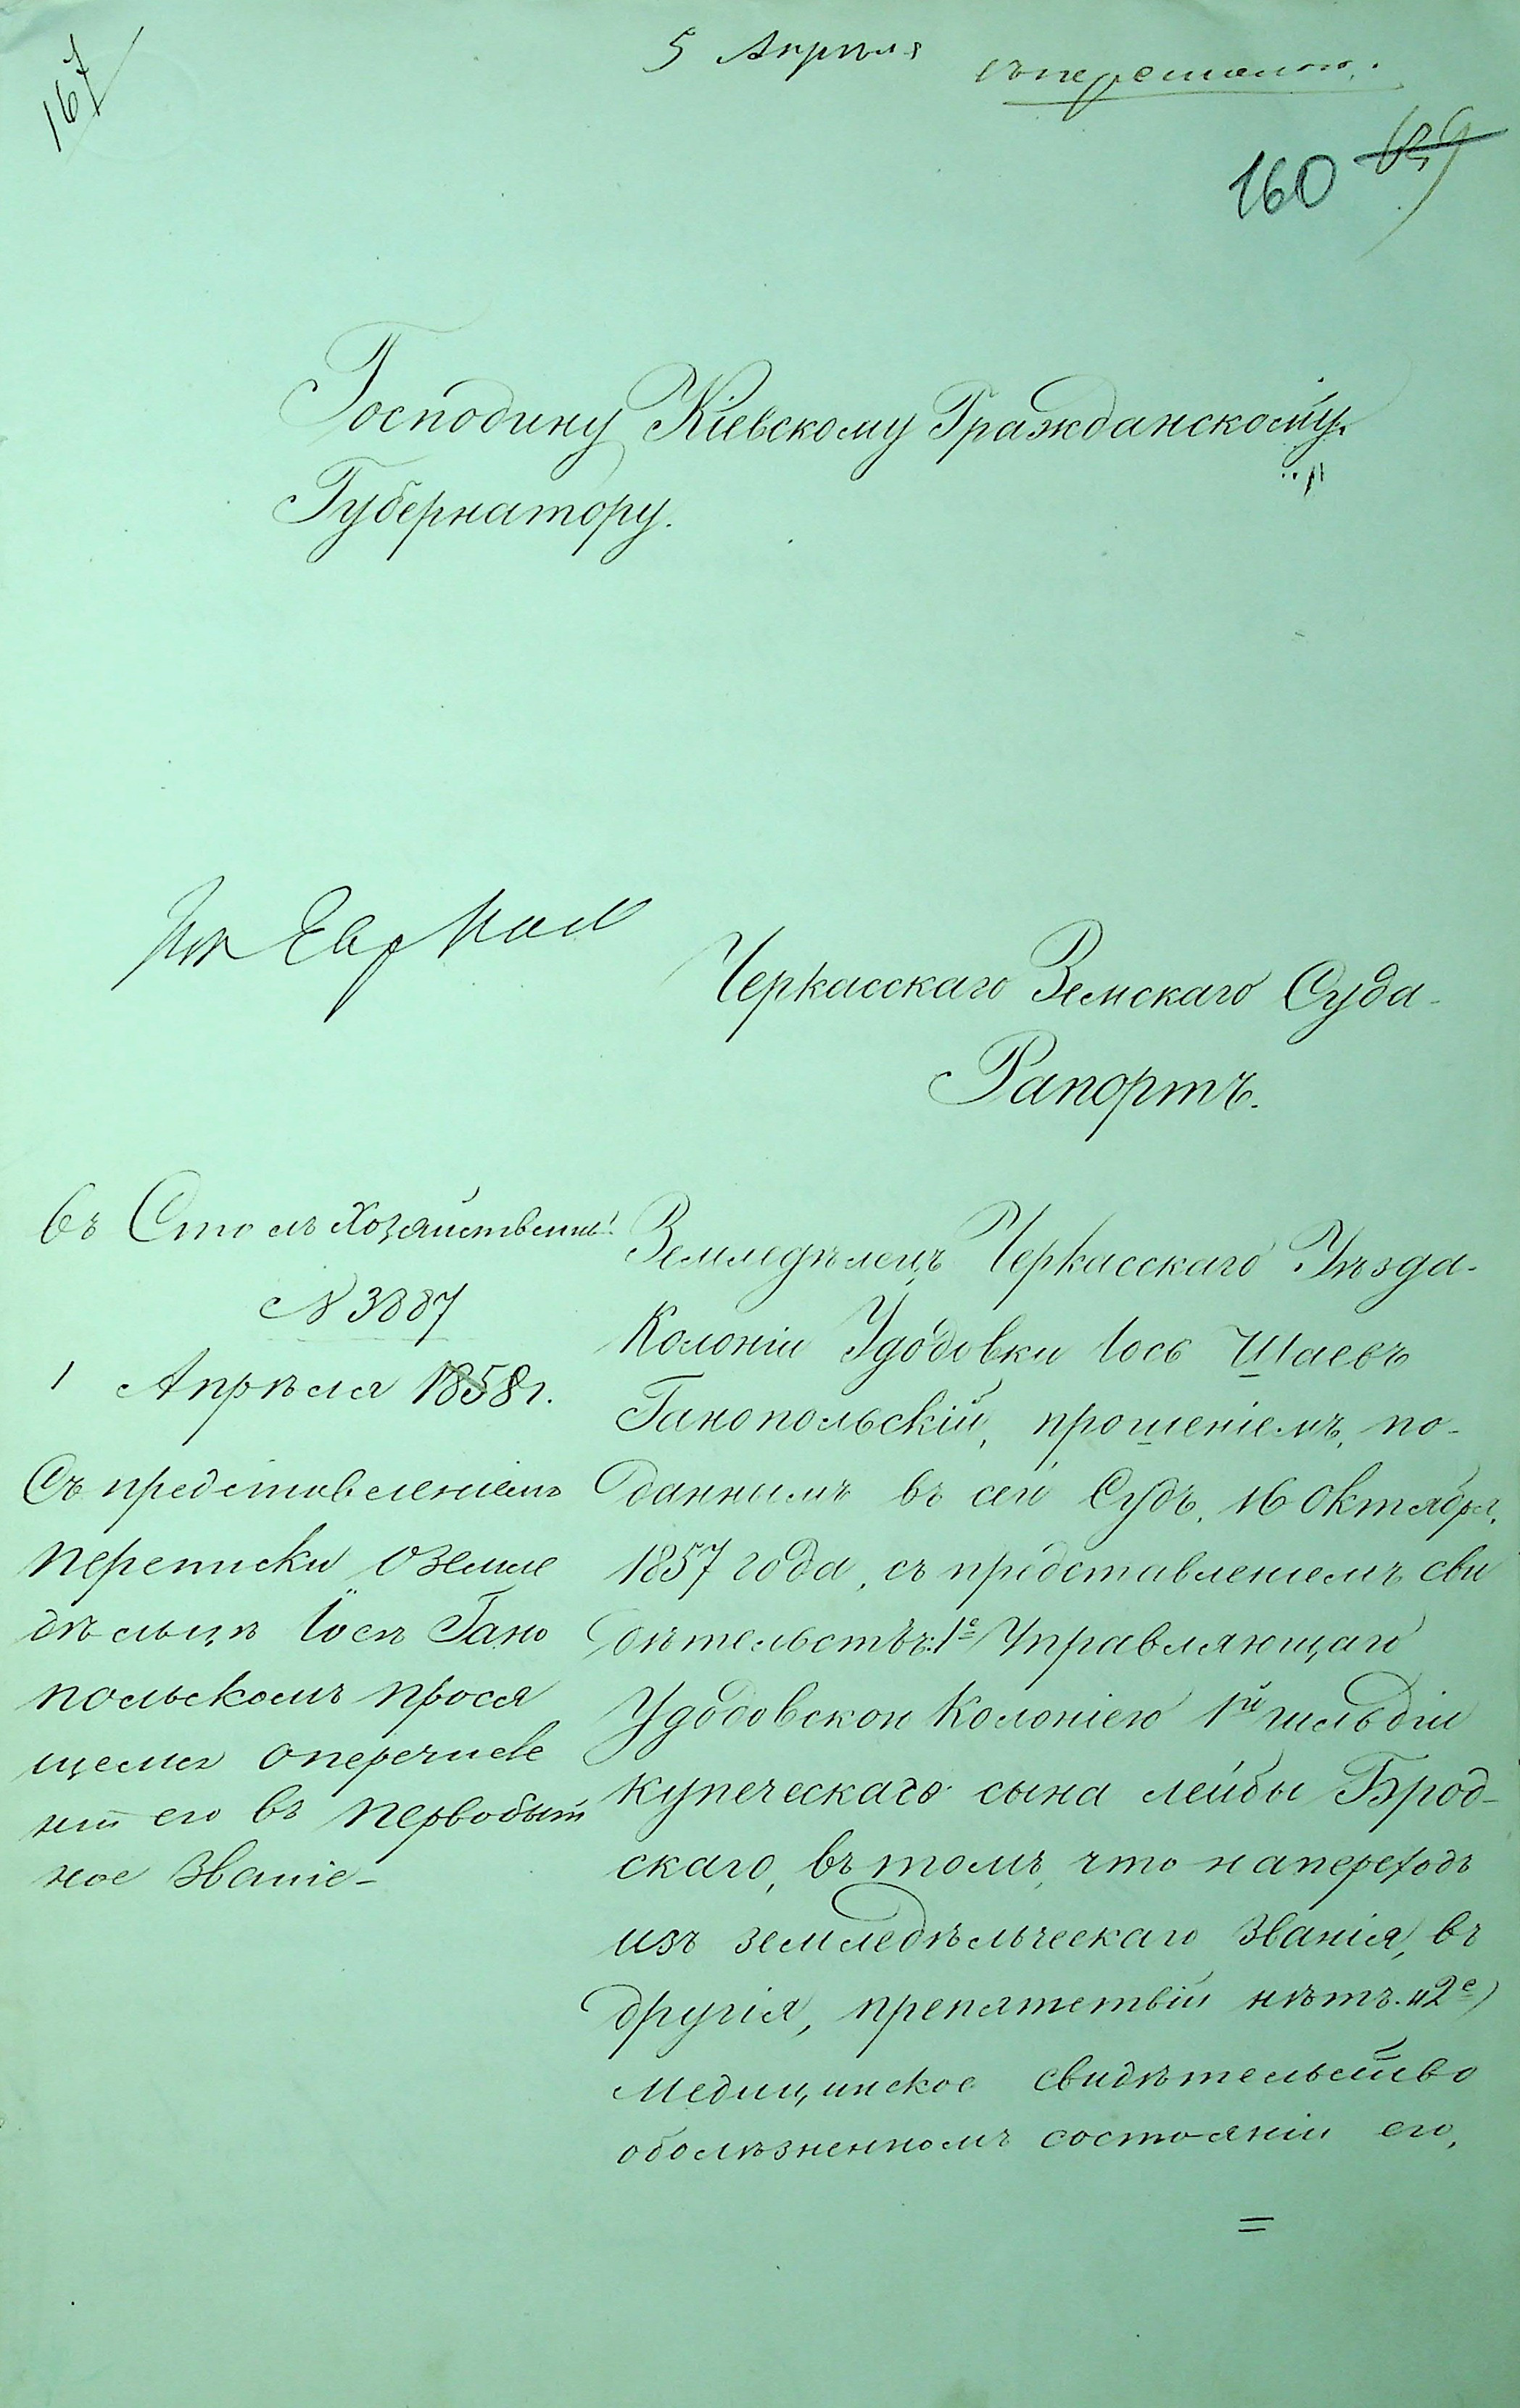 167
5 Апрѣля
съ перепискою.
160
Господину Кіевскому Гражданскому
Губернатору.
Черкасскаго Земскаго Суда
Рапортъ.
въ Столъ Хозяйственный
№ 3887
1 Апрѣля 1858 г.
Съ представленіемъ
переписки о земле
дѣльцѣ Іосѣ Гано
польскомъ прося
щемъ о перечисле
ніи его въ первобыт
ное званіе –
Земледѣлецъ Черкасскаго Уѣзда
Колоніи Удодовки Іось Шаевъ
Ганопольскій, прошеніемъ, по-
даннымъ въ сей Судъ, 16 Октября,
1857 года, съ представленіемъ сви
дѣтельствъ: 1е Управляющаго
Удодовскою Колоніею 1й гильдіи
купеческаго сына Лейбы Брод-
скаго, въ томъ, что на переходъ
изъ земледѣльческаго званія, въ
другія, препятствій нѣтъ. и 2е)
Медицинское свидѣтельство
о болѣзненномъ состояніи его,
=